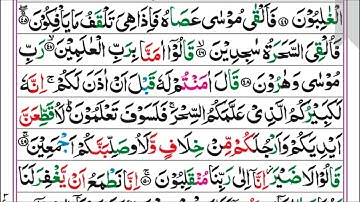 الْغٰلِبُوْنَ ﴿۴۴﴾ فَاَلْقٰى مُوْسٰى عَصَاهُ فَاِذَا هِيَ تَلْقَفُ مَا يَاْفِكُوْنَ ﴿۴۵﴾
فَاُلْقِيَ السَّحَرَةُ سٰجِدِيْنَ ﴿۴۶﴾ قَالُوْٓا اٰمَنَّا بِرَبِّ الْعٰلَمِيْنَ ﴿۴۷﴾ رَبِّ
مُوْسٰى وَهٰرُوْنَ ﴿۴۸﴾ قَالَ اٰمَنْتُمْ لَهٗ قَبْلَ اَنْ اٰذَنَ لَكُمْ ۚ اِنَّهٗ
لَكَبِيْرُكُمُ الَّذِيْ عَلَّمَكُمُ السِّحْرَ ۚ فَلَسَوْفَ تَعْلَمُوْنَ ؕ لَاُقَطِّعَنَّ
اَيْدِيَكُمْ وَاَرْجُلَكُمْ مِّنْ خِلَافٍ وَّلَاُوصَلِّبَنَّكُمْ اَجْمَعِيْنَ ﴿۴۹﴾
قَالُوْا لَا ضَيْرَ ؗ اِنَّآ اِلٰى رَبِّنَا مُنْقَلِبُوْنَ ﴿۵۰﴾ اِنَّا نَطْمَعُ اَنْ يَّغْفِرَ لَنَا